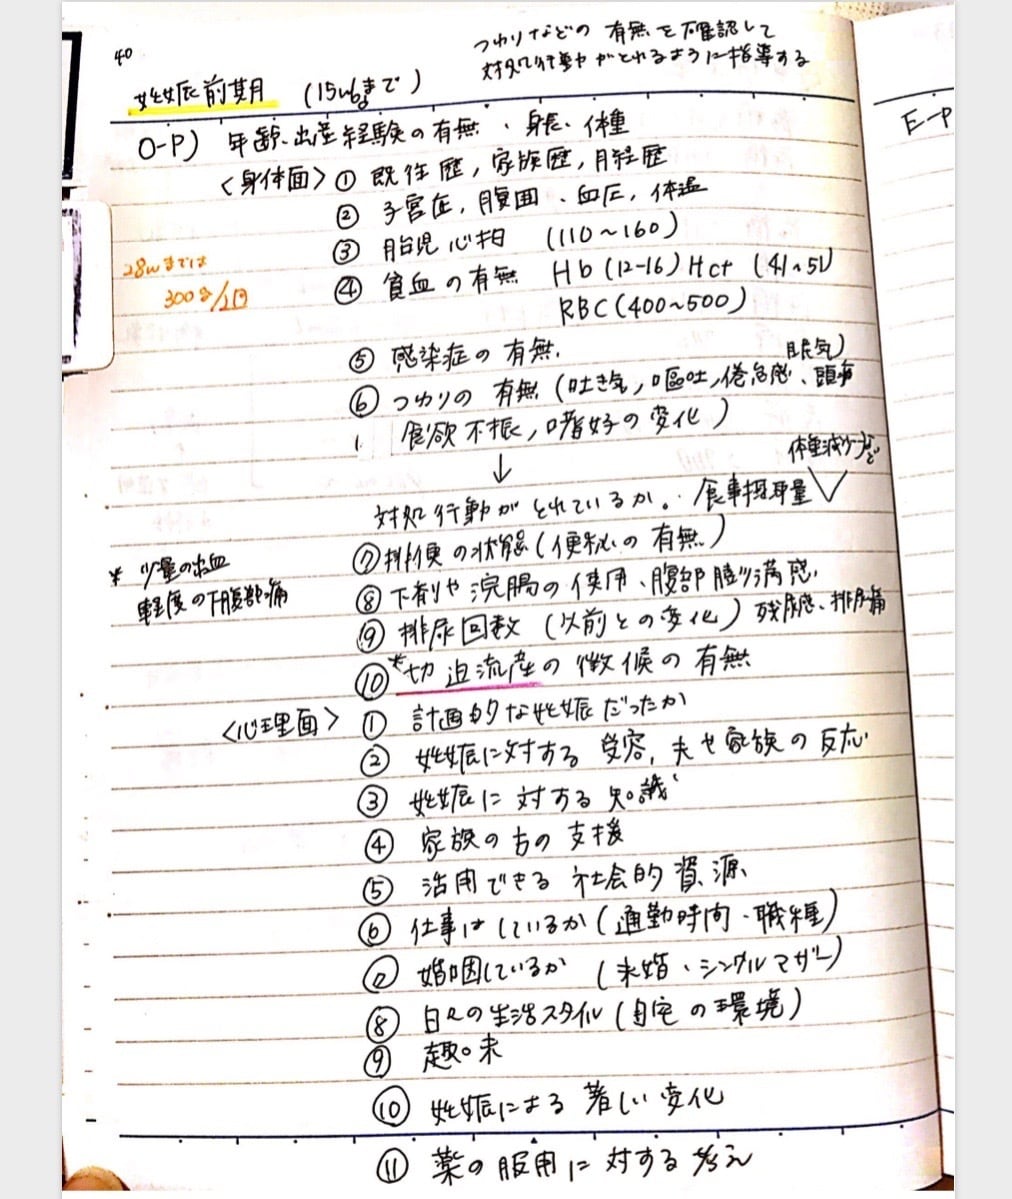 40
つわりなどの有無を確認して
対処行動がとれるように指導する
妊娠前期 (15wbまで)
E-P
O-P) 年齢、出産経験の有無、身長、体種
<身体面> ① 既往歴,家族歴,月経歴
② 子宮底,腹囲、血圧,体温
③ 胎児心拍 (110~160)
28wまでは
300g/1日
④ 貧血の有無 Hb(12-16) Hct (41~51)
RBC(400~500)
⑤ 感染症の有無.
⑥ つわりの有無(吐き気,嘔吐,倦怠感、頭痛
眠気)
食欲不振,嗜好の変化)
↓
体重減少など
対処行動がとれているか。食事摂取量
* 少量の出血
軽度の下腹部痛
⑦ 排便の状態(便秘の有無)
⑧ 下剤や浣腸の使用、腹部膨満感.
⑨ 排尿回数 (以前との変化) 残尿感、排尿痛
⑩ *切迫流産の徴候の有無
<心理面> ① 計画的な妊娠だったか
② 妊娠に対する受容,夫や家族の反応
③ 妊娠に対する知識
④ 家族の方の支援
⑤ 活用できる社会的資源
⑥ 仕事はしているか(通勤時間・職種)
⑦ 婚姻しているか (未婚・シングルマザー)
⑧ 日々の生活スタイル(自宅の環境)
⑨ 趣味
⑩ 妊娠による著しい変化
⑪ 薬の服用に対する考え